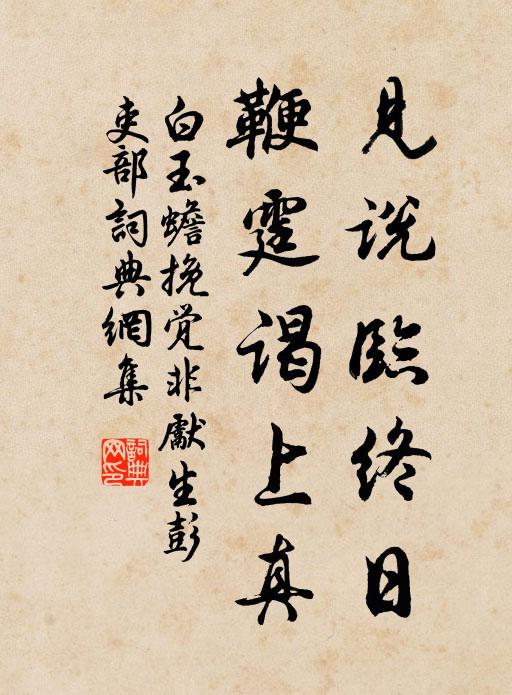 見説臨終日
鞭霆謁上真
白玉蟾挽觉非獻生彭
吏部詞典網集
詞典網印